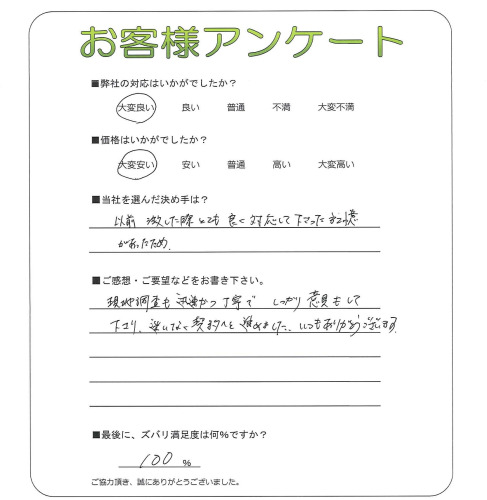 お客様アンケート
■弊社の対応はいかがでしたか？
大変良い 良い 普通 不満 大変不満
■価格はいかがでしたか？
大変安い 安い 普通 高い 大変高い
■当社を選んだ決め手は？
以前 した際とても良く対応して下さった記憶
があったため.
■ご感想・ご要望などをお書き下さい。
現地調査も迅速かつ丁寧で しっかり意見もして
下さり、迷いなく契約へと進めました、いつもありがとうございます
■最後に、ズバリ満足度は何％ですか？
100 ％
ご協力頂き、誠にありがとうございました。